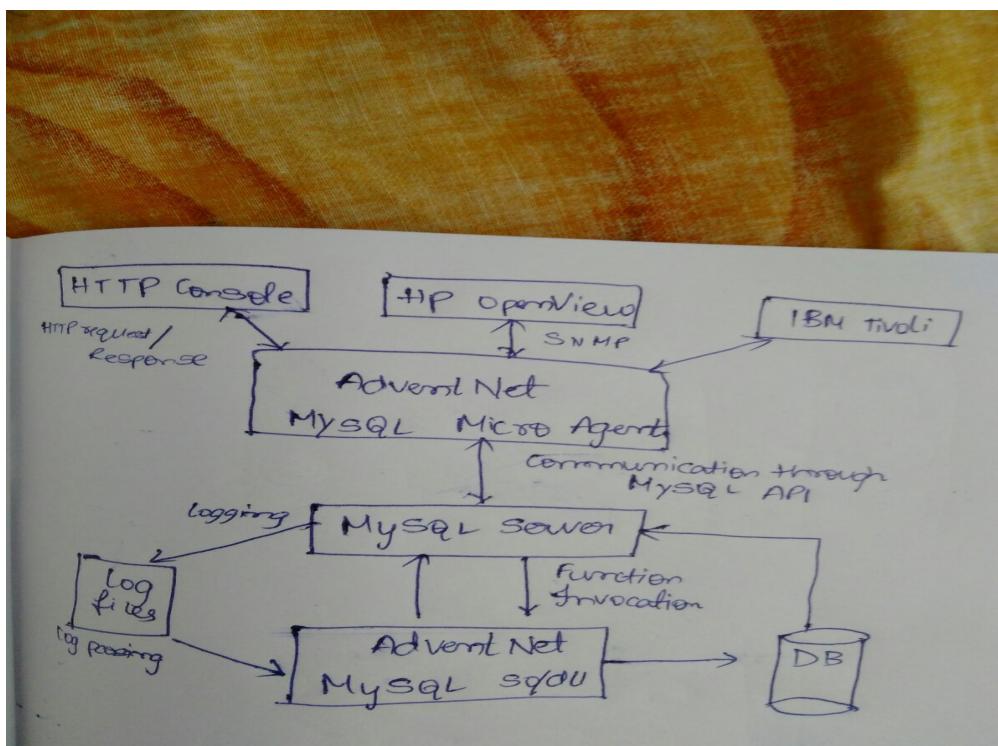 HTTP Console
HP OpenView
IBM Tivoli
HTTP request/
Response
SNMP
Advent Net
MySQL Micro Agent
Communication through
MySQL API
Logging
MySQL Server
Log
files
Function
Invocation
log parsing
Advent Net
MySQL
DB